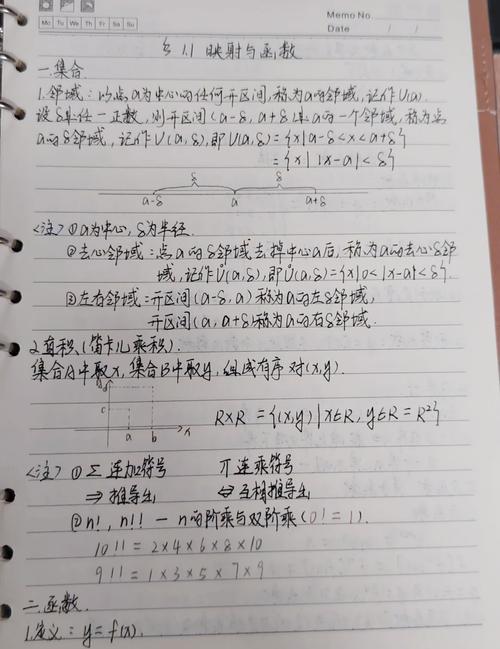 Memo No.
Mo Tu We Th Fr Sa Su
Date / /
§1.1 映射与函数
一.集合.
1.邻域：以点a为中心的任何开区间,称为a的邻域,记作U(a).
设δ是任一正数,则开区间(a-δ,a+δ)是a的一个邻域,称为点
a的δ邻域,记作U(a,δ),即U(a,δ)={x|a-δ<x<a+δ}
={x||x-a|<δ}
δ δ
a-δ a a+δ
<注>①a为中心,δ为半径.
②去心邻域：点a的δ邻域去掉中心a后,称为a的去心δ邻
域,记作Ů(a,δ),即Ů(a,δ)={x|0<|x-a|<δ}.
③左右邻域：开区间(a-δ,a)称为a的左δ邻域,
开区间(a,a+δ)称为a的右δ邻域.
2.直积.(笛卡儿乘积).
集合A中取x,集合B中取y,组成有序对(x,y).
c
a b x
R×R={(x,y)|x∈R,y∈R=R²}
<注>①∑连加符号 π连乘符号
⇒推导出 ⇔互相推导出
②n!,n!!—n的阶乘与双阶乘(0!=1).
10!!=2×4×6×8×10
9!!=1×3×5×7×9
二.函数.
1.定义：y=f(x).